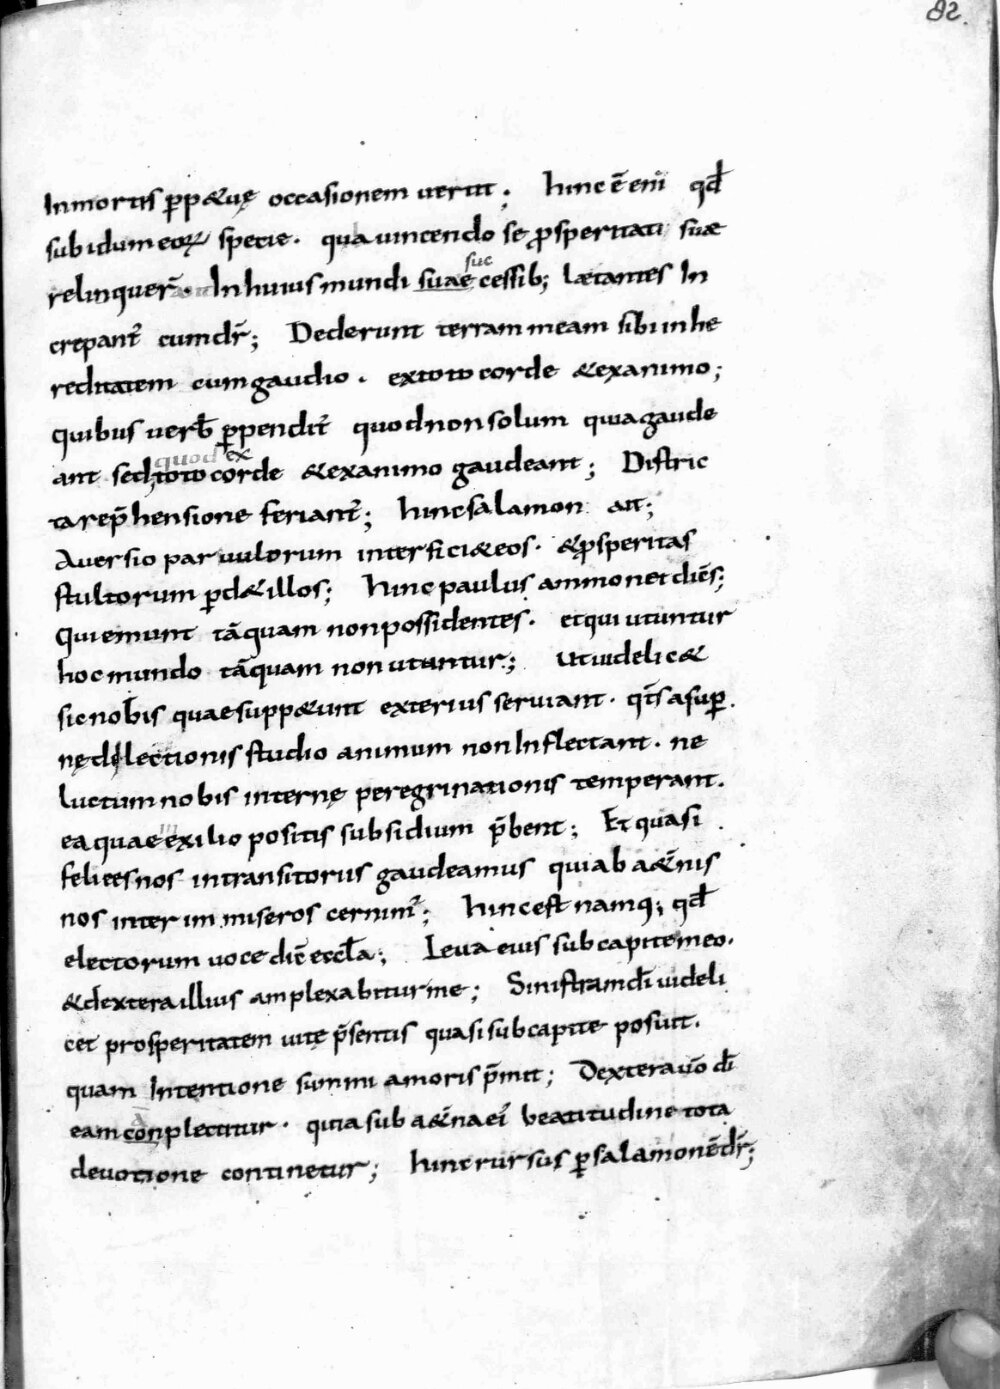 82.
In mortis ꝑp&uę occasionem uertit; hinc ē eni qđ
sub idumeoꝝ specie. qua uincendo se ꝓsperitati suae
relinquer̄. In huius mundi suae cessib; laetantes In
suc
crepant᷑ cum dr̄; Dederunt terram meam sibi in he
reditatem cum gaudio. ex toto corde & ex animo;
Quibus uerb̄ ꝑpendit᷑ quod non solum quia gaude
ant sed toto corde & ex animo gaudeant; Distric
quod ex
ta rep̄hensione feriant᷑; hinc salamon ait;
Auersio paruulorum interfici& eos. & ꝓsperitas
stultorum ꝑd& illos; hinc paulus ammonet diēs;
Qui emunt tāquam non possidentes. et qui utuntur
hoc mundo tāquam non utuntur; Ut uidelic&
sic nob̄is quae supp&unt exterius seruiant. qt̄s a suꝑ
nę dilectionis studio animum non Inflectant. ne
luctum nobis internę peregrinationis temperant.
ea quae exilio positis subsidium p̄bent; Et quasi
in
felices nos in transitoriis gaudeamus qui ab a&̄nis
nos interim miseros cernim᷑; hinc est namq; qđ
electorum uoce dic̄ eccl̄a; Leua eius sub capite meo.
& dextera illius amplexabitur me; Sinistram dī uideli
cet prosperitatem uitę p̄sentis quasi sub capite posuit.
quam Intentione summi amoris p̄mit; Dextera uō dī
eam conplectitur. quia sub a&̄na ei᷑ beatitudine tota
deuotione continetur; hinc rursus ꝑ salamonē dr̄;